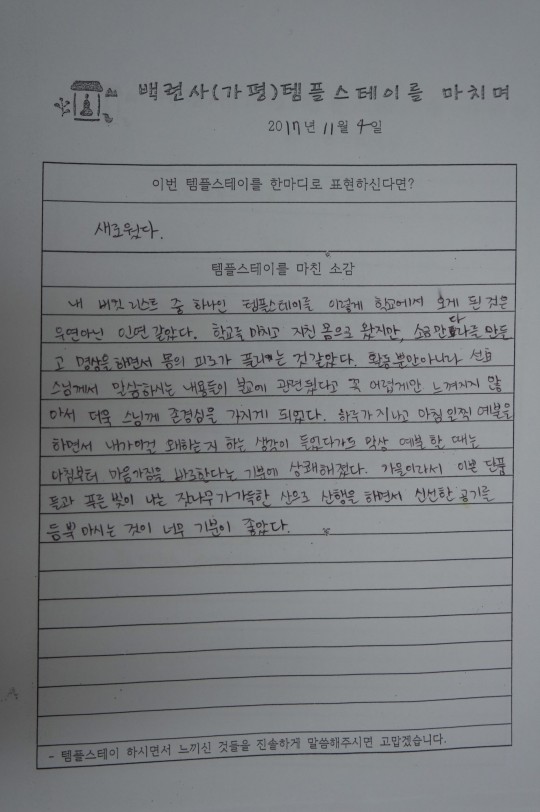 백련사(가평)템플스테이를 마치며
2017년 11월 4일
이번 템플스테이를 한마디로 표현하신다면?
새로웠다.
템플스테이를 마친 소감
내 버킷 리스트 중 하나인 템플스테이를 이렇게 학교에서 오게 된 것은
우연아닌 인연 같았다. 학교를 마치고 지친 몸으로 왔지만, 소금만다라를 만들
고 명상을 하면서 몸의 피로가 풀리는 것 같았다. 활동뿐만아니라
스님께서 말씀하시는 내용들이 불교에 관련됬다고 꼭 어렵게만 느껴지지 않
아서 더욱 스님께 존경심을 가지게 되었다. 하루가 지나고 아침 일찍 예불을
하면서 내가 이걸 왜하는지 하는 생각이 들었다가도 막상 예불 할 때는
아침부터 마음가짐을 바로한다는 기분에 상쾌해졌다. 가을이라서 이쁜 단풍
들과 푸른 빛이 나는 잣나무가 가득한 산으로 산행을 하면서 신선한 공기를
듬뿍 마시는 것이 너무 기분이 좋았다.
- 템플스테이 하시면서 느끼신 것들을 진솔하게 말씀해주시면 고맙겠습니다.